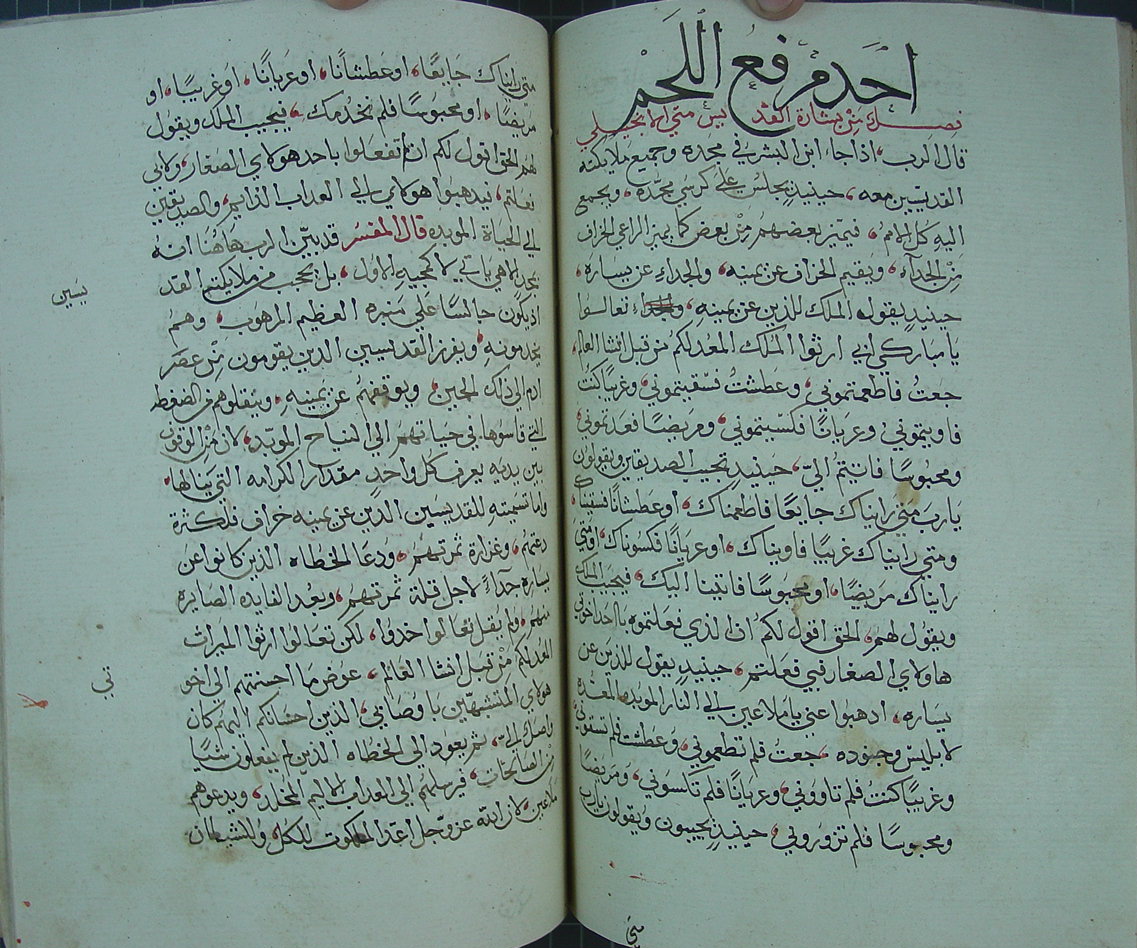 احد مرفع اللحم
فصل من بشارة القديس متي الانجيلي
قال الرب، اذا جا، ابن البشر في مجده وجميع ملايكته
القديسين معه، حينيذٍ يجلس علي كرسي مجده، ويجمع
اليهِ كل الامم، فيميز بعضهم مِن بعض كما يميز الراعي الخراف
مِن الجدآء، ويقيم الخراف عن يمينه، والجداء عن يساره،
حينيذٍ يقول الملك للذين عن يمينهِ، تعالوا
يا مباركي ابي ارثوا الملك المعد لكم من قبل انشا العالم،
جعتُ فاطعمتموني، وعطشتُ فسقيتموني، وغريبًا كنتُ
فاويتموني، وعريانًا فكسيتموني، ومريضًا فعدتموني،
ومحبوسًا فاتيتم اليّ، حينيذٍ تجيب الصديقين ويقولون
يا رب متي رايناك جايعًا فاطعمناك، او عطشانًا فسقيناك،
ومتي رايناك غريبًا فاويناك، او عريانًا فكسوناك، او متي
رايناك مريضًا، او محبوسًا فاتينا اليك، فيجيب الملك
ويقول لهم، الحق اقول لكم ان الذي فعلتموه باحد اخوتي
هاولاي الصغار فبي فعلتم، حينيذٍ يقول للذين عن
يساره، اذهبوا عني يا ملاعين الي النار الموبده المعده
لابليس وجنوده، جعتُ فلم تطعموني، وعطشت فلم تسقوني،
وغريبًا كنت فلم تاووني، وعريانًا فلم تاكسوني، ومريضًا
ومحبوسًا فلم تزوروني، حينيذٍ يجيبون ويقولون يا رب
متي
متي رايناك جايعًا، او عطشانًا، او عريانًا، او غريبًا، او
مريضًا، او محبوسًا فلم نخدمك، فيجيب الملك ويقول
لهم الحق اقول لكم ان لم تفعلوا باحد هولاي الصغار، ولا بي
فعلتم، فيذهبوا هولاي الي العذاب الدايم، والصديقين
الي الحياة الموبده قال المفسر قد بيّن الرب هاهُنا انه
بمجد الاهي ياتي لا كمجيهِ الاول، بل يحب من ملايكته القد
يسين
اذ يكون جالسًا علي منبره العظيم المرهوب، وهم
يخدمونهِ، ويفرز القديسين الذين يقومون مِن عصر
ادم الي ذلك الحين، ويوقفهم عن يمينهِ، وينقلوهم من الضغطه
التي قاسوها في حياتهم الي النياح الموبد، لان من الوقوف
بين يديه يعرف كل واحدٍ مقدار الكرامه التي ينالها،
واما تسميتهِ للقديسين الذين عن يمينه خراف فلكثرة
دعتهم، وغزارة ثمرتهم، ودعا الخطاه الذين كانوا عن
يساره جداءً لاجل قلة ثمرتهم، وبعد الفايده الصايره
منهم، ولم يقل تعالوا خدوا، لكن تعالوا ارثوا الميراث
المعد لكم مِن قبل انشا العالم، عوض ما احسنتم الي اخو
تي
هولاي المتشبهين باوصافي، الذين احسانكم اليهم كان
واصل اليّ، ثم يعود الي الخطاه الذين لم يفعلون شيًا
من الصالحات، فيرسلهم الي العذاب الاليم المخلد، ويدعوهم
ملاعين، لان الله عز وجل اعد الملكوت للكل، وللشيطان